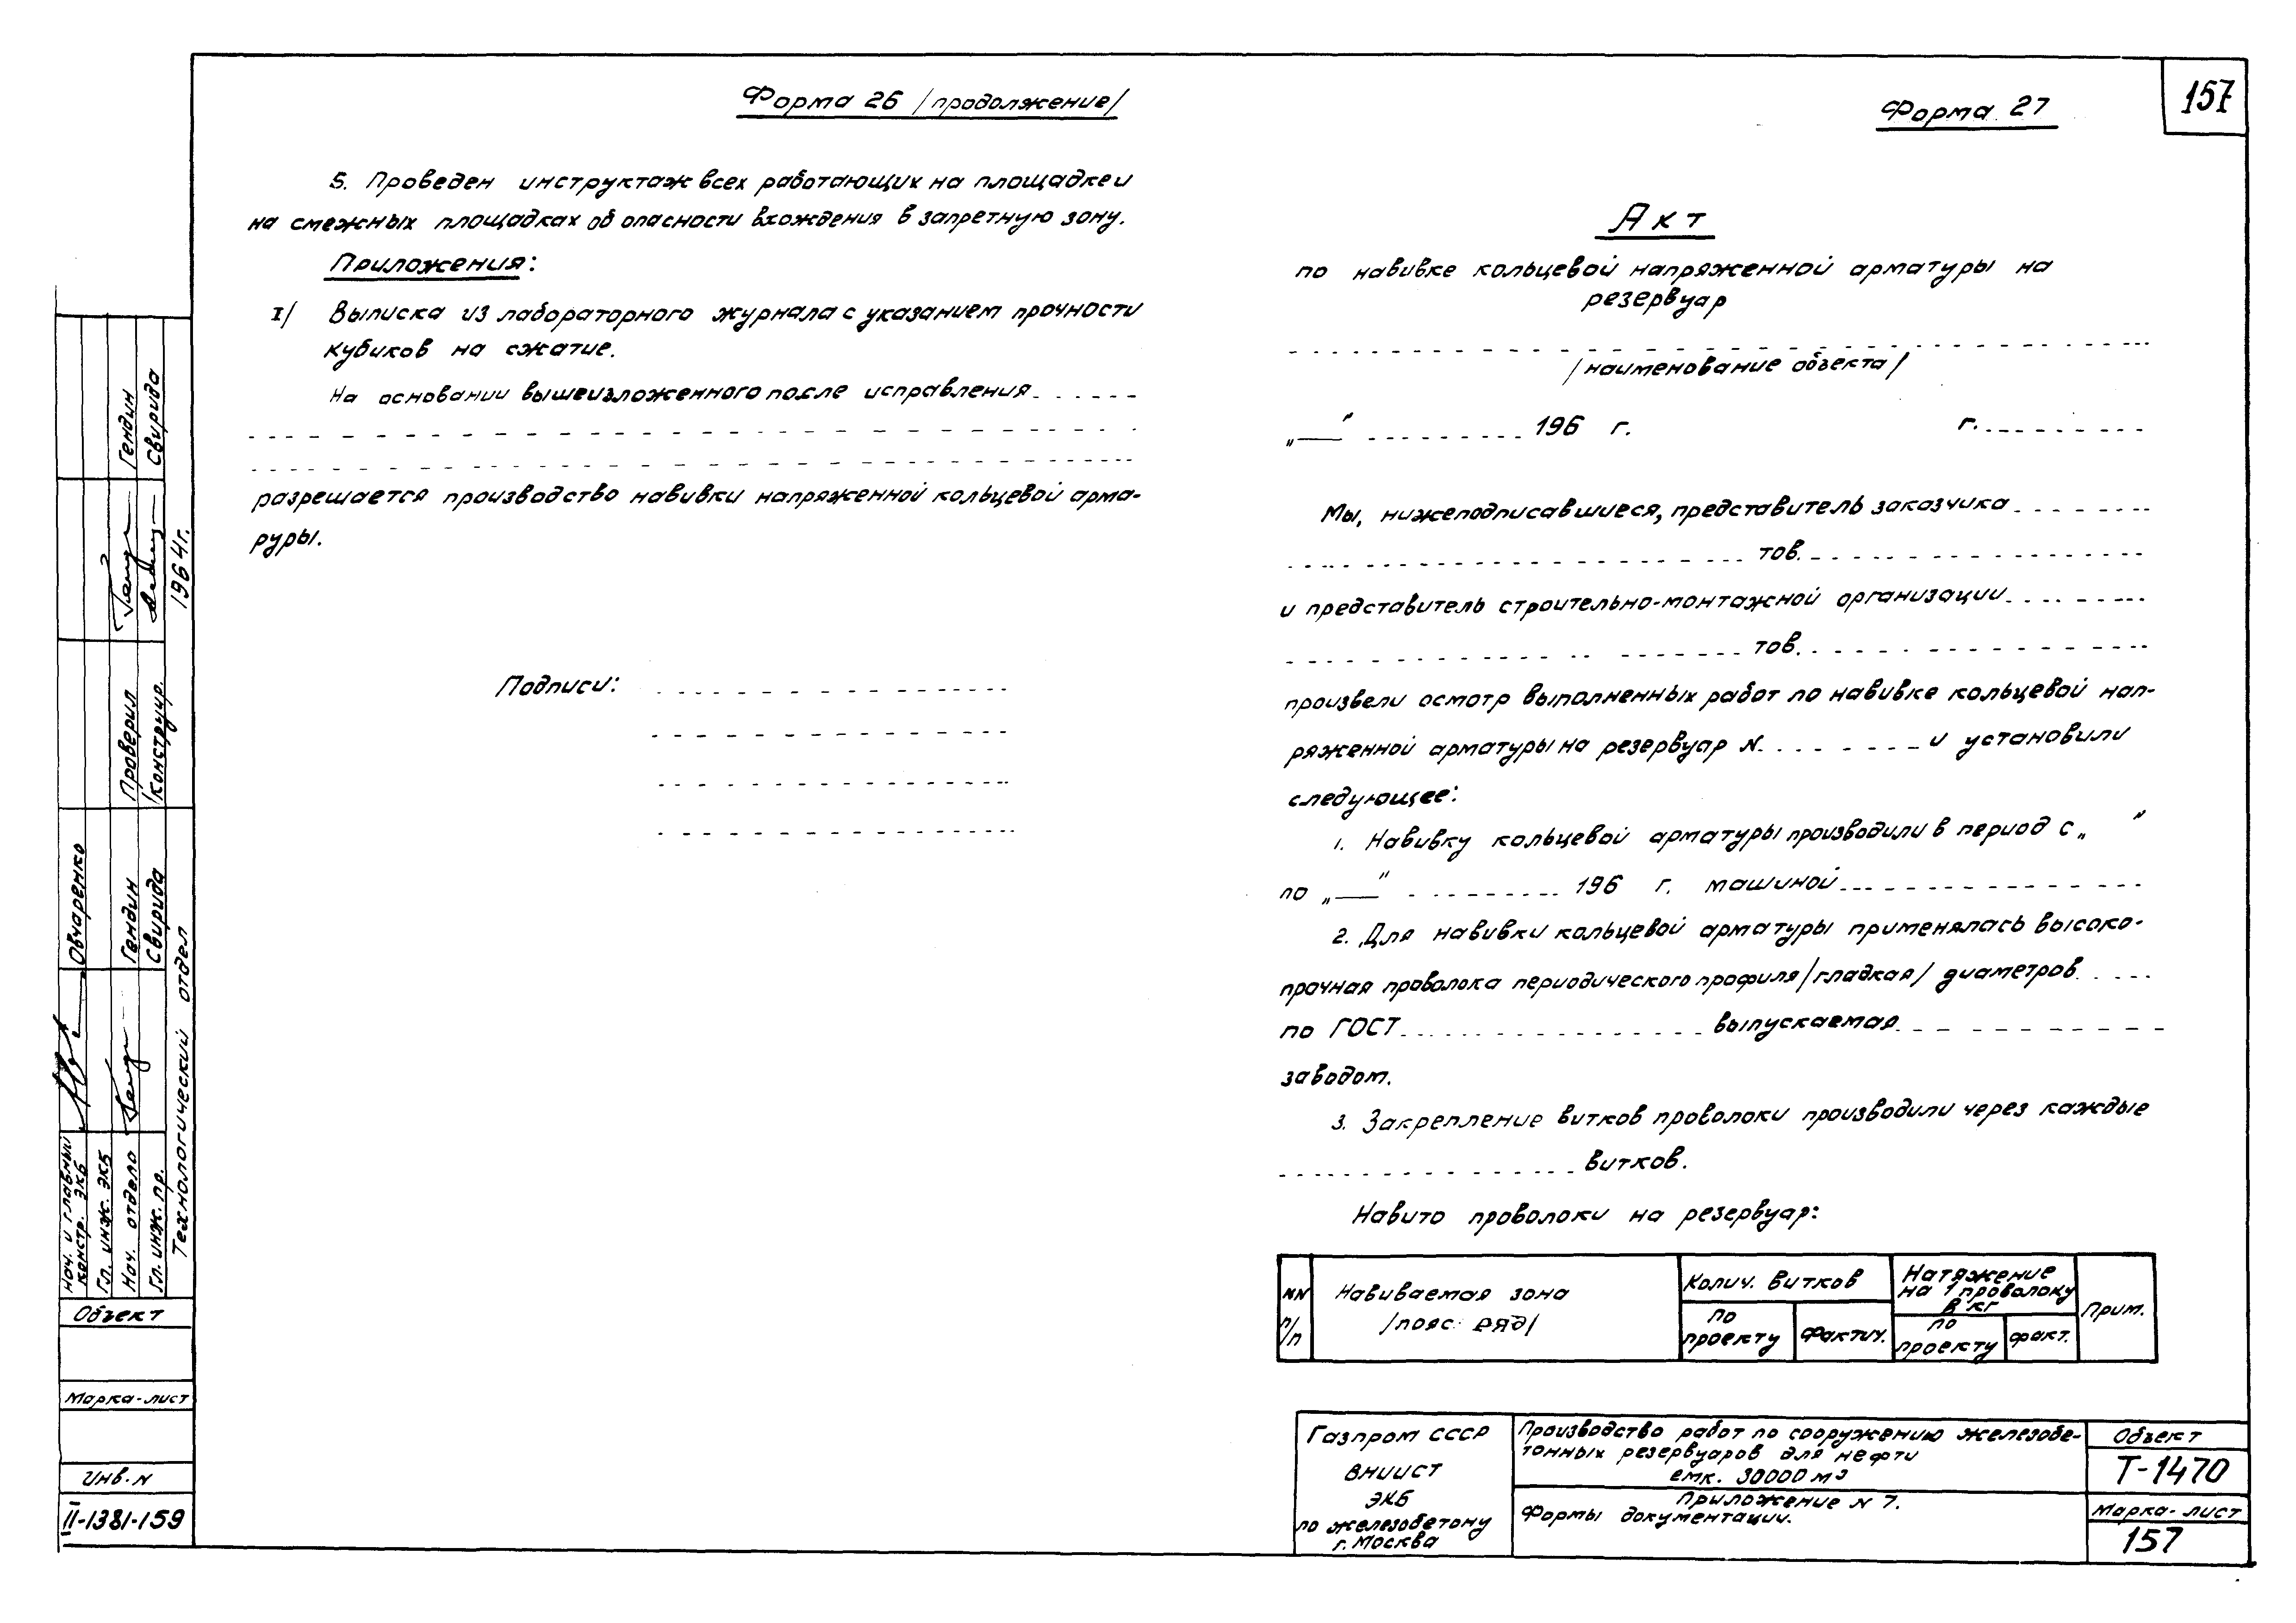 157
Форма 26 /продолжение/
5. Проведен инструктаж всех работающих на площадке и
на смежных площадках об опасности вхождения в запретную зону.
Приложения:
I/ Выписка из лабораторного журнала с указанием прочности
кубиков на сжатие.
На основании вышеизложенного после исправления
разрешается производство навивки напряженной кольцевой арма-
руры.
Подписи:
Форма 27
Акт
по навивке кольцевой напряженной арматуры на
резервуар
/наименование объекта/
„ " 196 г. г.
Мы, нижеподписавшиеся, представитель заказчика
тов.
и представитель строительно-монтажной организации
тов.
произвели осмотр выполненных работ по навивке кольцевой нап-
ряженной арматуры на резервуар N и установили
следующее:
1. Навивку кольцевой арматуры производили в период с „ "
по „ " 196 г. машиной
2. Для навивки кольцевой арматуры применялась высоко-
прочная проволока периодического профиля /гладкая/ диаметров
по ГОСТ выпускаемая
заводом.
3. Закрепление витков проволоки производили через каждые
витков.
Навито проволоки на резервуар:
NN п/п
Навиваемая зона
/пояс ряд/
Колич. витков
по проекту
Фактич.
Натяжение
на 1 проволоку
в кг
по проекту
факт.
Прим.
Газпром СССР
ВНИИСТ
ЭКБ
по железобетону
г. Москва
Производство работ по сооружению железобе-
тонных резервуаров для нефти
емк. 30000 м3
Приложение N 7.
Формы документации.
Объект
Т-1470
Марка-лист
157
Нач. и главный
констр. ЭКБ
Овчаренко
Гл. инж. ЭКБ
Нач. отдела
Гендин
Проверил
Гендин
Гл. инж. пр.
Свирида
Конструир.
Свирида
Технологический отдел
1964г.
Объект
Марка-лист
Инв. N
II-1381-159